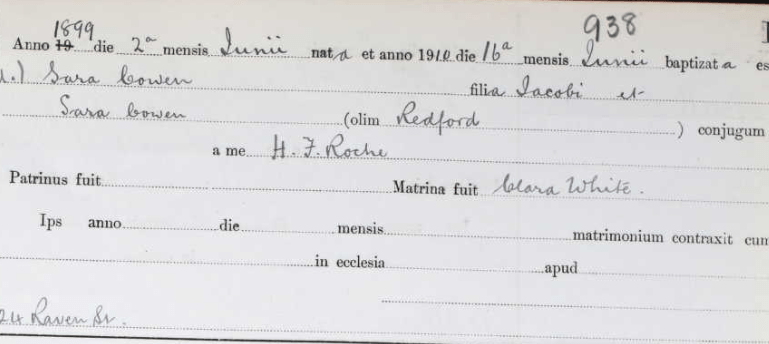 1899 938
Anno 19 die 2ª mensis Junii nat a et anno 1910 die 16ª mensis Junii baptizat a es
Sara Cowen filia Jacobi et
Sara Cowen (olim Redford) conjugum
a me H. F. Roche
Patrinus fuit Matrina fuit Clara White.
Ips anno die mensis matrimonium contraxit cum
in ecclesia apud
24 Raven St.